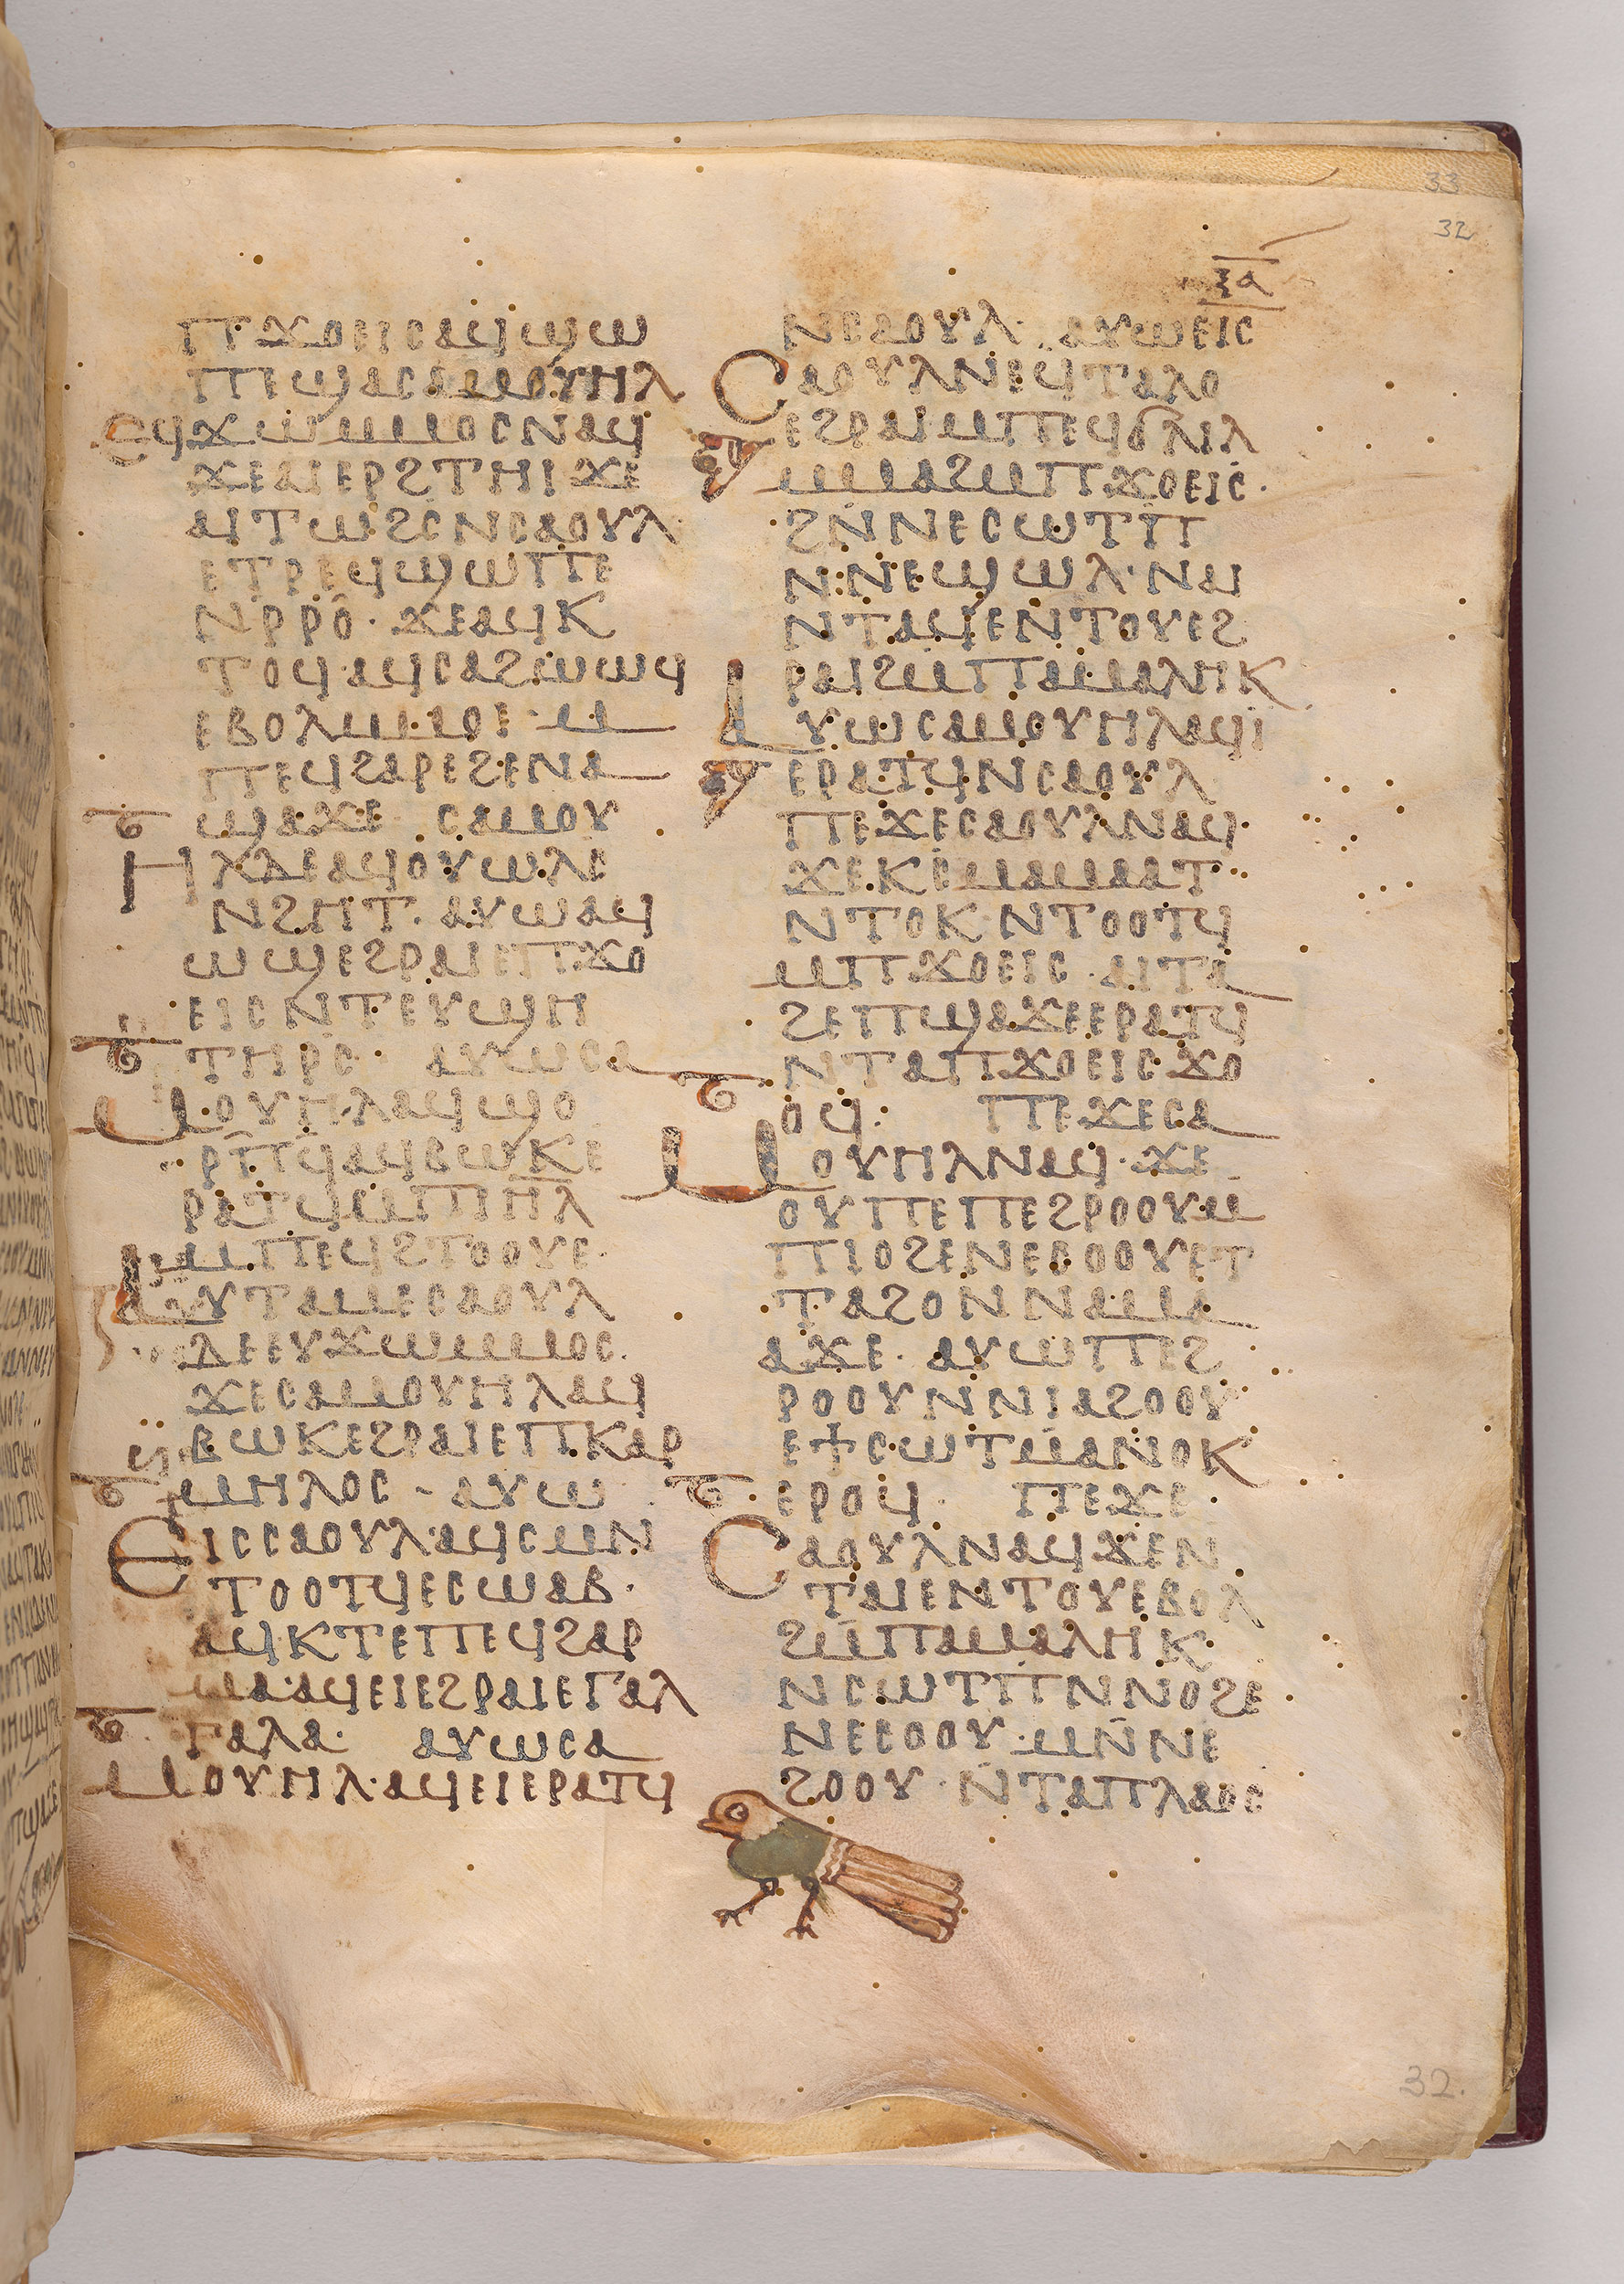 33
32
ⲝⲁ
ⲡϫⲟⲉⲓⲥⲁϥϣⲱ
ⲡⲉϣⲁⲥⲁⲙⲟⲩⲏⲗ
ⲉϥϫⲱⲙⲙⲟⲥⲛⲁϥ
ϫⲉⲁⲓⲉⲣϩⲧⲏⲓϫⲉ
ⲁⲓⲧⲱϩⲥⲛⲥⲁⲟⲩⲗ
ⲉⲧⲣⲉϥϣⲱⲡⲉ
ⲛⲣⲣⲟ· ϫⲉⲁϥⲕ
ⲧⲟϥ·ⲁϥⲥⲁϩⲱⲱϥ
ⲉⲃⲟⲗⲙⲙⲟⲓ· ⲙ
ⲡⲉϥϩⲁⲣⲉϩⲉⲛⲁ
ϣⲁϫⲉ ⲥⲁⲙⲟⲩ
ⲏⲗⲇⲉⲁϥⲟⲩⲱⲗⲥ
ⲛϩⲏⲧ· ⲁⲩⲱⲁϥ
ⲱϣⲉϩⲣⲁⲓⲉⲡϫⲟ
ⲉⲓⲥⲛⲧⲉⲩϣⲏ
ⲧⲏⲣⲥ· ⲁⲩⲱⲥⲁ
ⲙⲟⲩⲏⲗⲁϥϣⲟ
ⲣⲡϥⲁϥⲃⲱⲕⲉ
ⲣⲁⲧϥⲙⲡⲓⲏⲗ
ⲙⲡⲉϥϩⲧⲟⲟⲩⲉ·
ⲁⲩⲧⲁⲙⲉⲥⲁⲟⲩⲗ
ⲇⲉⲉⲩϫⲱⲙⲙⲟⲥ·
ϫⲉⲥⲁⲙⲟⲩⲏⲗⲁϥ
ⲃⲱⲕⲉϩⲣⲁⲓⲉⲡⲕⲁⲣ
ⲙⲏⲗⲟⲥ - ⲁⲩⲱ
ⲉⲓⲥⲥⲁⲟⲩⲗ·ⲁϥⲥⲙⲛ
ⲧⲟⲟⲧϥⲉⲥⲱⲁⲃ·
ⲁϥⲕⲧⲉⲡⲉϥϩⲁⲣ
ⲙⲁ·ⲁϥⲉⲓⲉϩⲣⲁⲓⲉⲅⲁⲗ
ⲅⲁⲗⲁ· ⲁⲩⲱⲥⲁ
ⲙⲟⲩⲏⲗ·ⲁϥⲉⲓⲉⲣⲁⲧϥ
ⲛⲥⲁⲟⲩⲗ· ⲁⲩⲱⲉⲓⲥ
ⲥⲁⲟⲩⲗⲛⲉϥⲧⲁⲗⲟ
ⲉϩⲣⲁⲓⲙⲡⲉϥϭⲗⲓⲗ
ⲙⲙⲁϩⲙⲡϫⲟⲉⲓⲥ·
ϩⲛⲛⲉⲥⲱⲧⲡ
ⲛⲛⲉϣⲱⲗ·ⲛⲁⲓ
ⲛⲧⲁϥⲉⲛⲧⲟⲩⲉϩ
ⲣⲁⲓϩⲙⲡⲁⲙⲁⲗⲏⲕ
ⲁⲩⲱⲥⲁⲙⲟⲩⲏⲗⲁϥⲓ
ⲉⲣⲁⲧϥⲛⲥⲁⲟⲩⲗ
ⲡⲉϫⲉⲥⲁⲟⲩⲗⲛⲁϥ·
ϫⲉⲕⲥⲙⲁⲙⲁⲁⲧ·
ⲛⲧⲟⲕ·ⲛⲧⲟⲟⲧϥ
ⲙⲡϫⲟⲉⲓⲥ·ⲁⲓⲧⲁ
ϩⲉⲡϣⲁϫⲉⲉⲣⲁⲧϥ
ⲛⲧⲁⲡϫⲟⲉⲓⲥ·ϫⲟ
ⲟϥ: ⲡⲉϫⲉⲥⲁ
ⲙⲟⲩⲏⲗⲛⲁϥ·ϫⲉ
ⲟⲩⲡⲉⲡⲉϩⲣⲟⲟⲩⲙ
ⲡⲓⲟϩⲉⲛⲉⲥⲟⲟⲩⲉⲧ
ⲧⲁϩⲟⲛⲛⲁⲙⲁ
ⲁϫⲉ· ⲁⲩⲱⲡⲉϩ
ⲣⲟⲟⲩⲛⲛⲓⲁϩⲟⲟⲩ
ⲉϯⲥⲱⲧⲙⲁⲛⲟⲕ
ⲉⲣⲟϥ· ⲡⲉϫⲉ·
ⲥⲁⲟⲩⲗⲛⲁϥϫⲉⲛ
ⲧⲁⲓⲉⲛⲧⲟⲩⲉⲃⲟⲗ
ϩⲙⲡⲁⲙⲁⲗⲏⲕ·
ⲛⲥⲱⲧⲡⲛⲛⲟϩⲉ
ⲛⲉⲥⲟⲟⲩ·ⲙⲛⲛⲉ
ϩⲟⲟⲩ·ⲛⲧⲁⲡⲗⲁⲟⲥ
32.